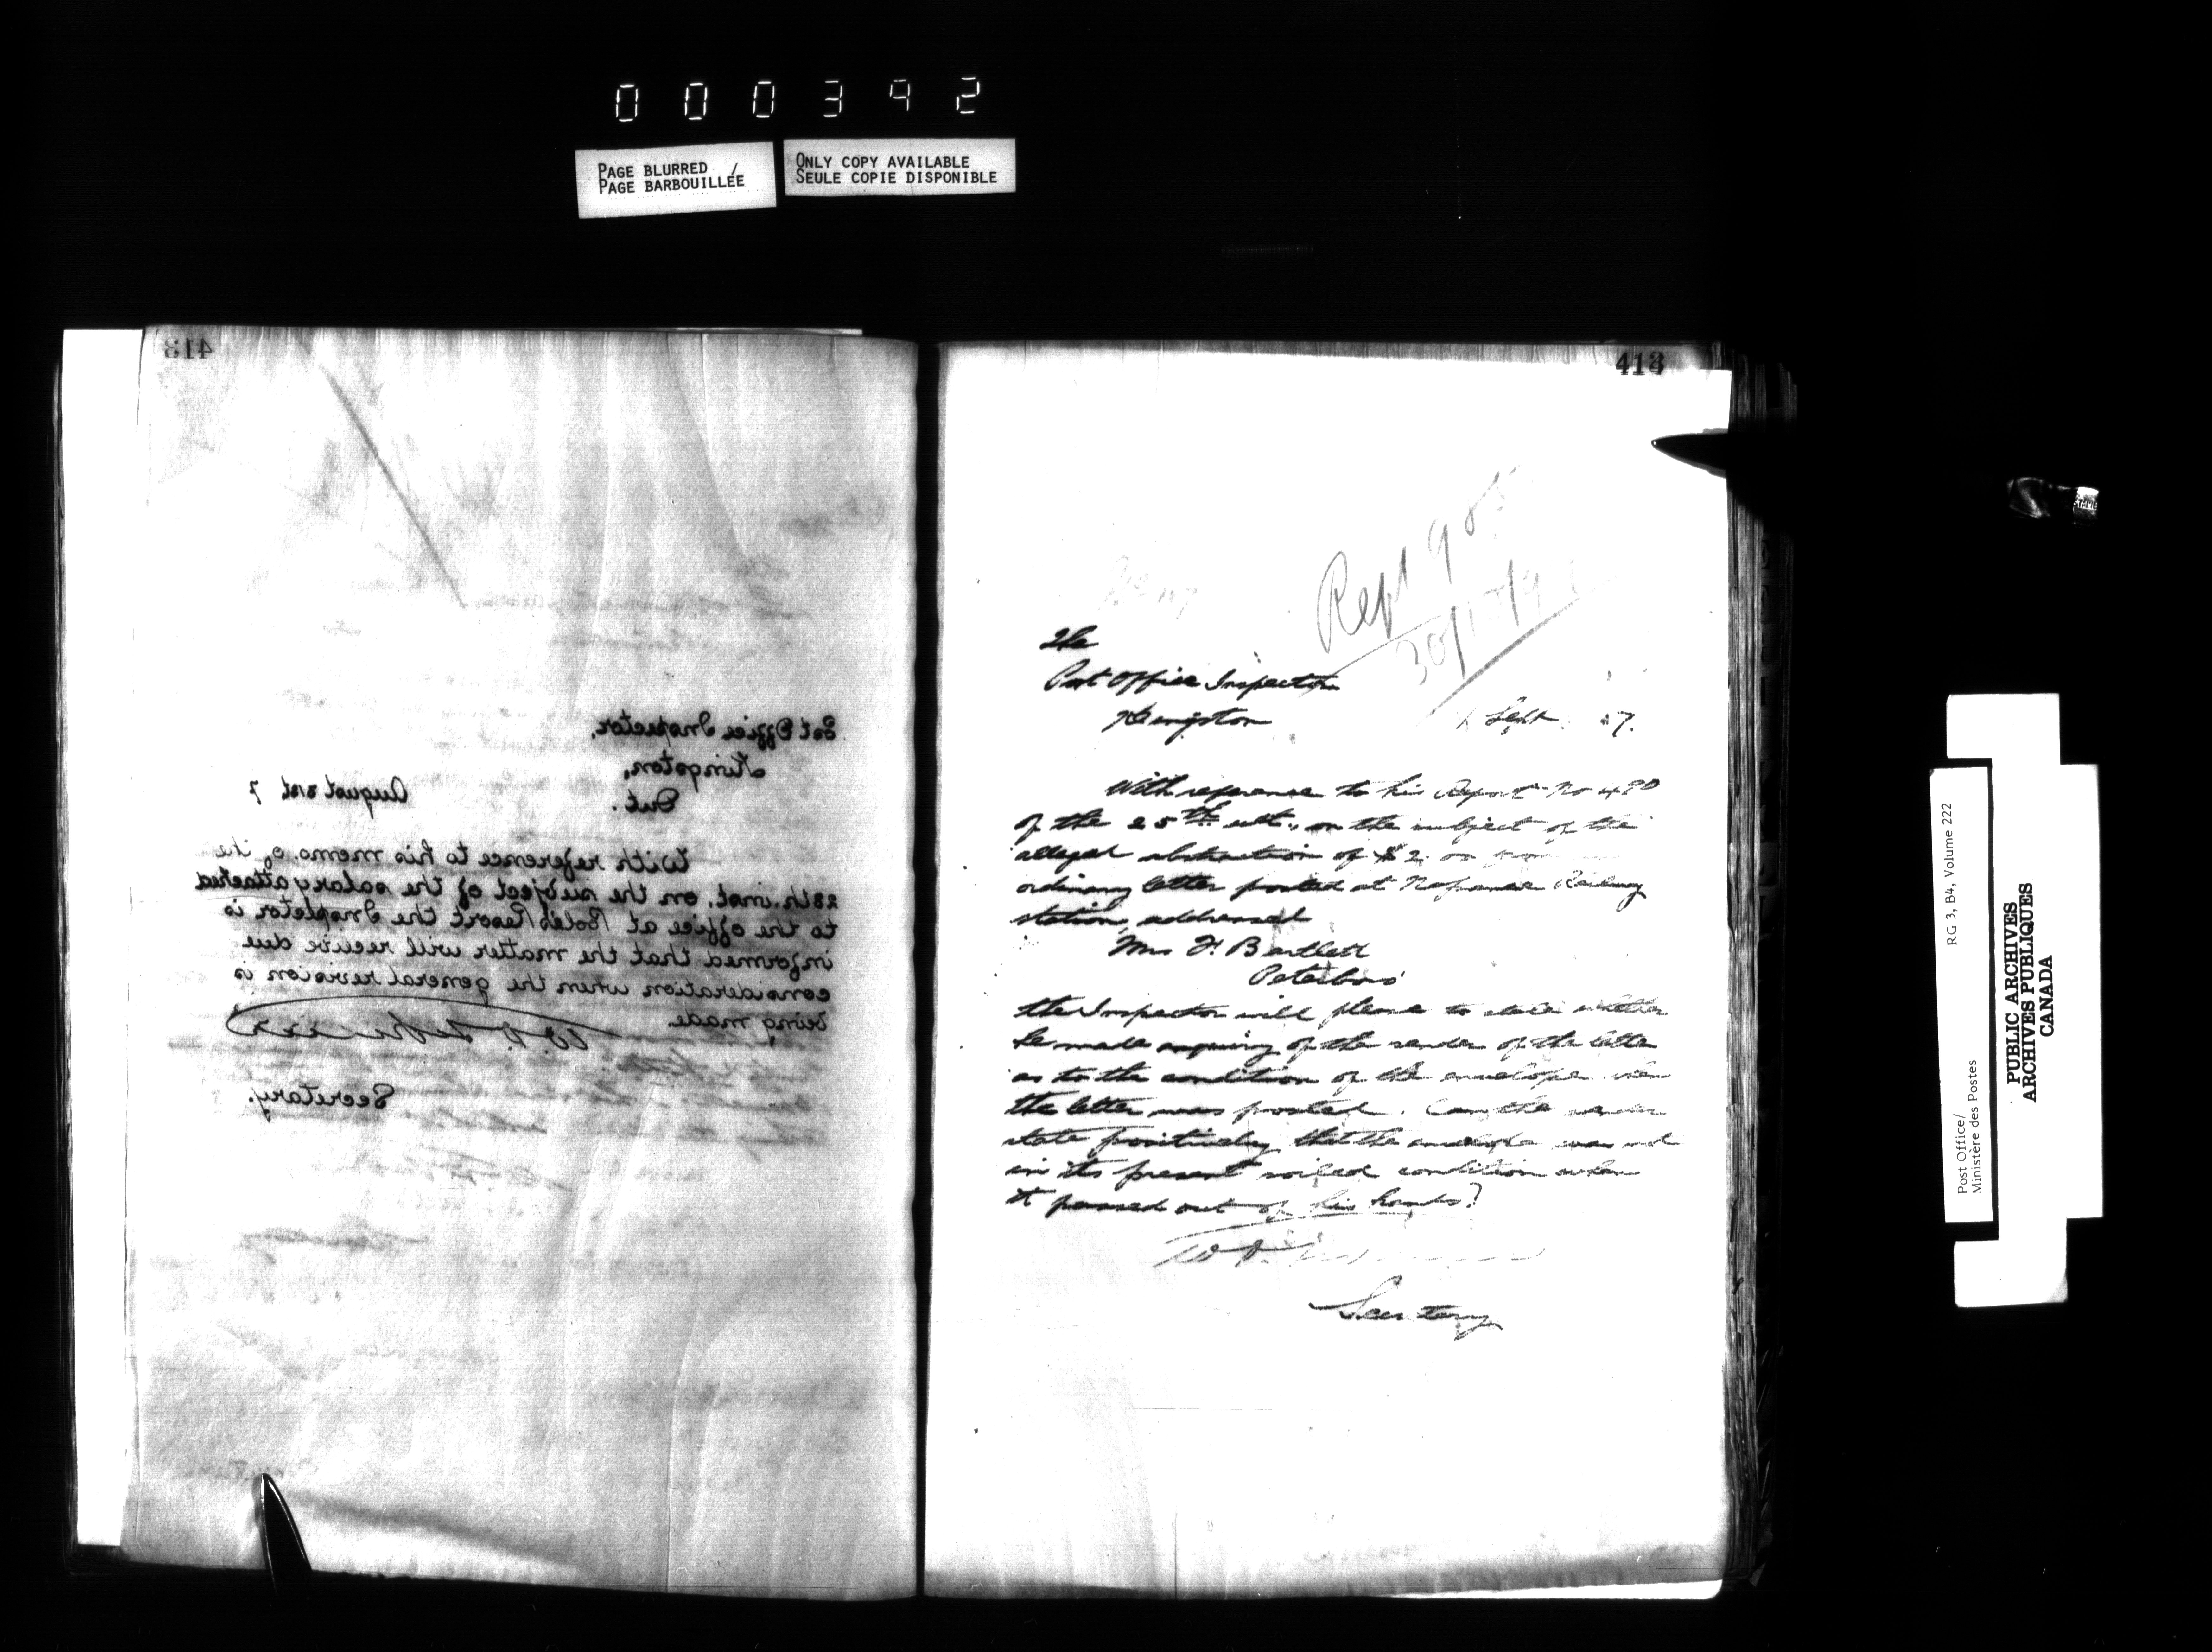 000392
PAGE BLURRED /
PAGE BARBOUILLÉE
ONLY COPY AVAILABLE
SEULE COPIE DISPONIBLE
413
Post Office Inspector,
Kingston,
Ont.
August 31st 7
With reference to his memo. of the
28th. inst. on the subject of the salary attached
to the office at Resort the Inspector is
informed that the matter will receive due
consideration when the general revision is
being made.
Secretary.
413
Rept 985
The
Post Office Inspector
Kingston
Sept 7.
With reference to his Report No 490
of the 25th ult., on the subject of the
alleged abstraction of $2
ordinary letter posted at Napanee Railway
station, addressed
Mrs F. Bartlett
Peterboro
the Inspector will please to state whether
he made enquiry of the sender of the letter
as to the condition of the envelope when
the letter was posted. Can the sender
state positively that the envelope was not
in its present soiled condition when
it passed out of his hands?
Secretary
RG 3, B4, Volume 222
Post Office/
Ministère des Postes
PUBLIC ARCHIVES
ARCHIVES PUBLIQUES
CANADA